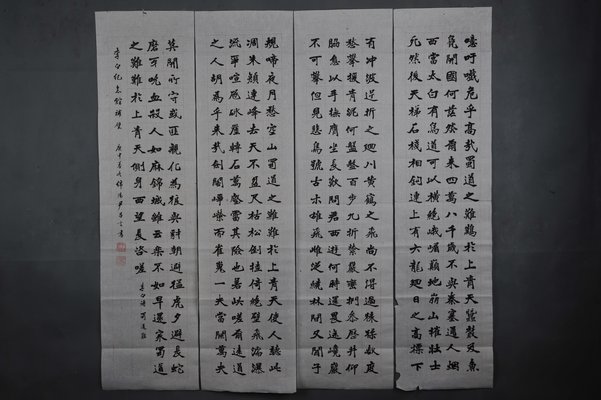 噫吁嚱危乎高哉蜀道之難難於上青天蠶叢及魚
鳧開國何茫然爾來四萬八千歲不與秦塞通人煙
西當太白有鳥道可以橫絕峨嵋巔地崩山摧壯士
死然後天梯石棧相鉤連上有六龍迴日之高標下
有沖波逆折之迴川黃鶴之飛尚不得過猿猱欲度
愁攀援青泥何盤盤百步九折縈巖巒捫參歷井仰
脅息以手撫膺坐長歎問君西遊何時還畏途巉巖
不可攀但見悲鳥號古木雄飛雌從繞林間又聞子
規啼夜月愁空山蜀道之難難於上青天使人聽此
凋朱顏連峰去天不盈尺枯松倒挂倚絕壁飛湍瀑
流爭喧豗砯崖轉石萬壑雷其險也若此嗟爾遠道
之人胡為乎來哉劍閣崢嶸而崔嵬一夫當關萬夫
莫開所守或匪親化為狼與豺朝避猛虎夕避長蛇
磨牙吮血殺人如麻錦城雖云樂不如早還家蜀道
之難難於上青天側身西望長咨嗟
李白詩蜀道難
李白紀念館補壁 庚申